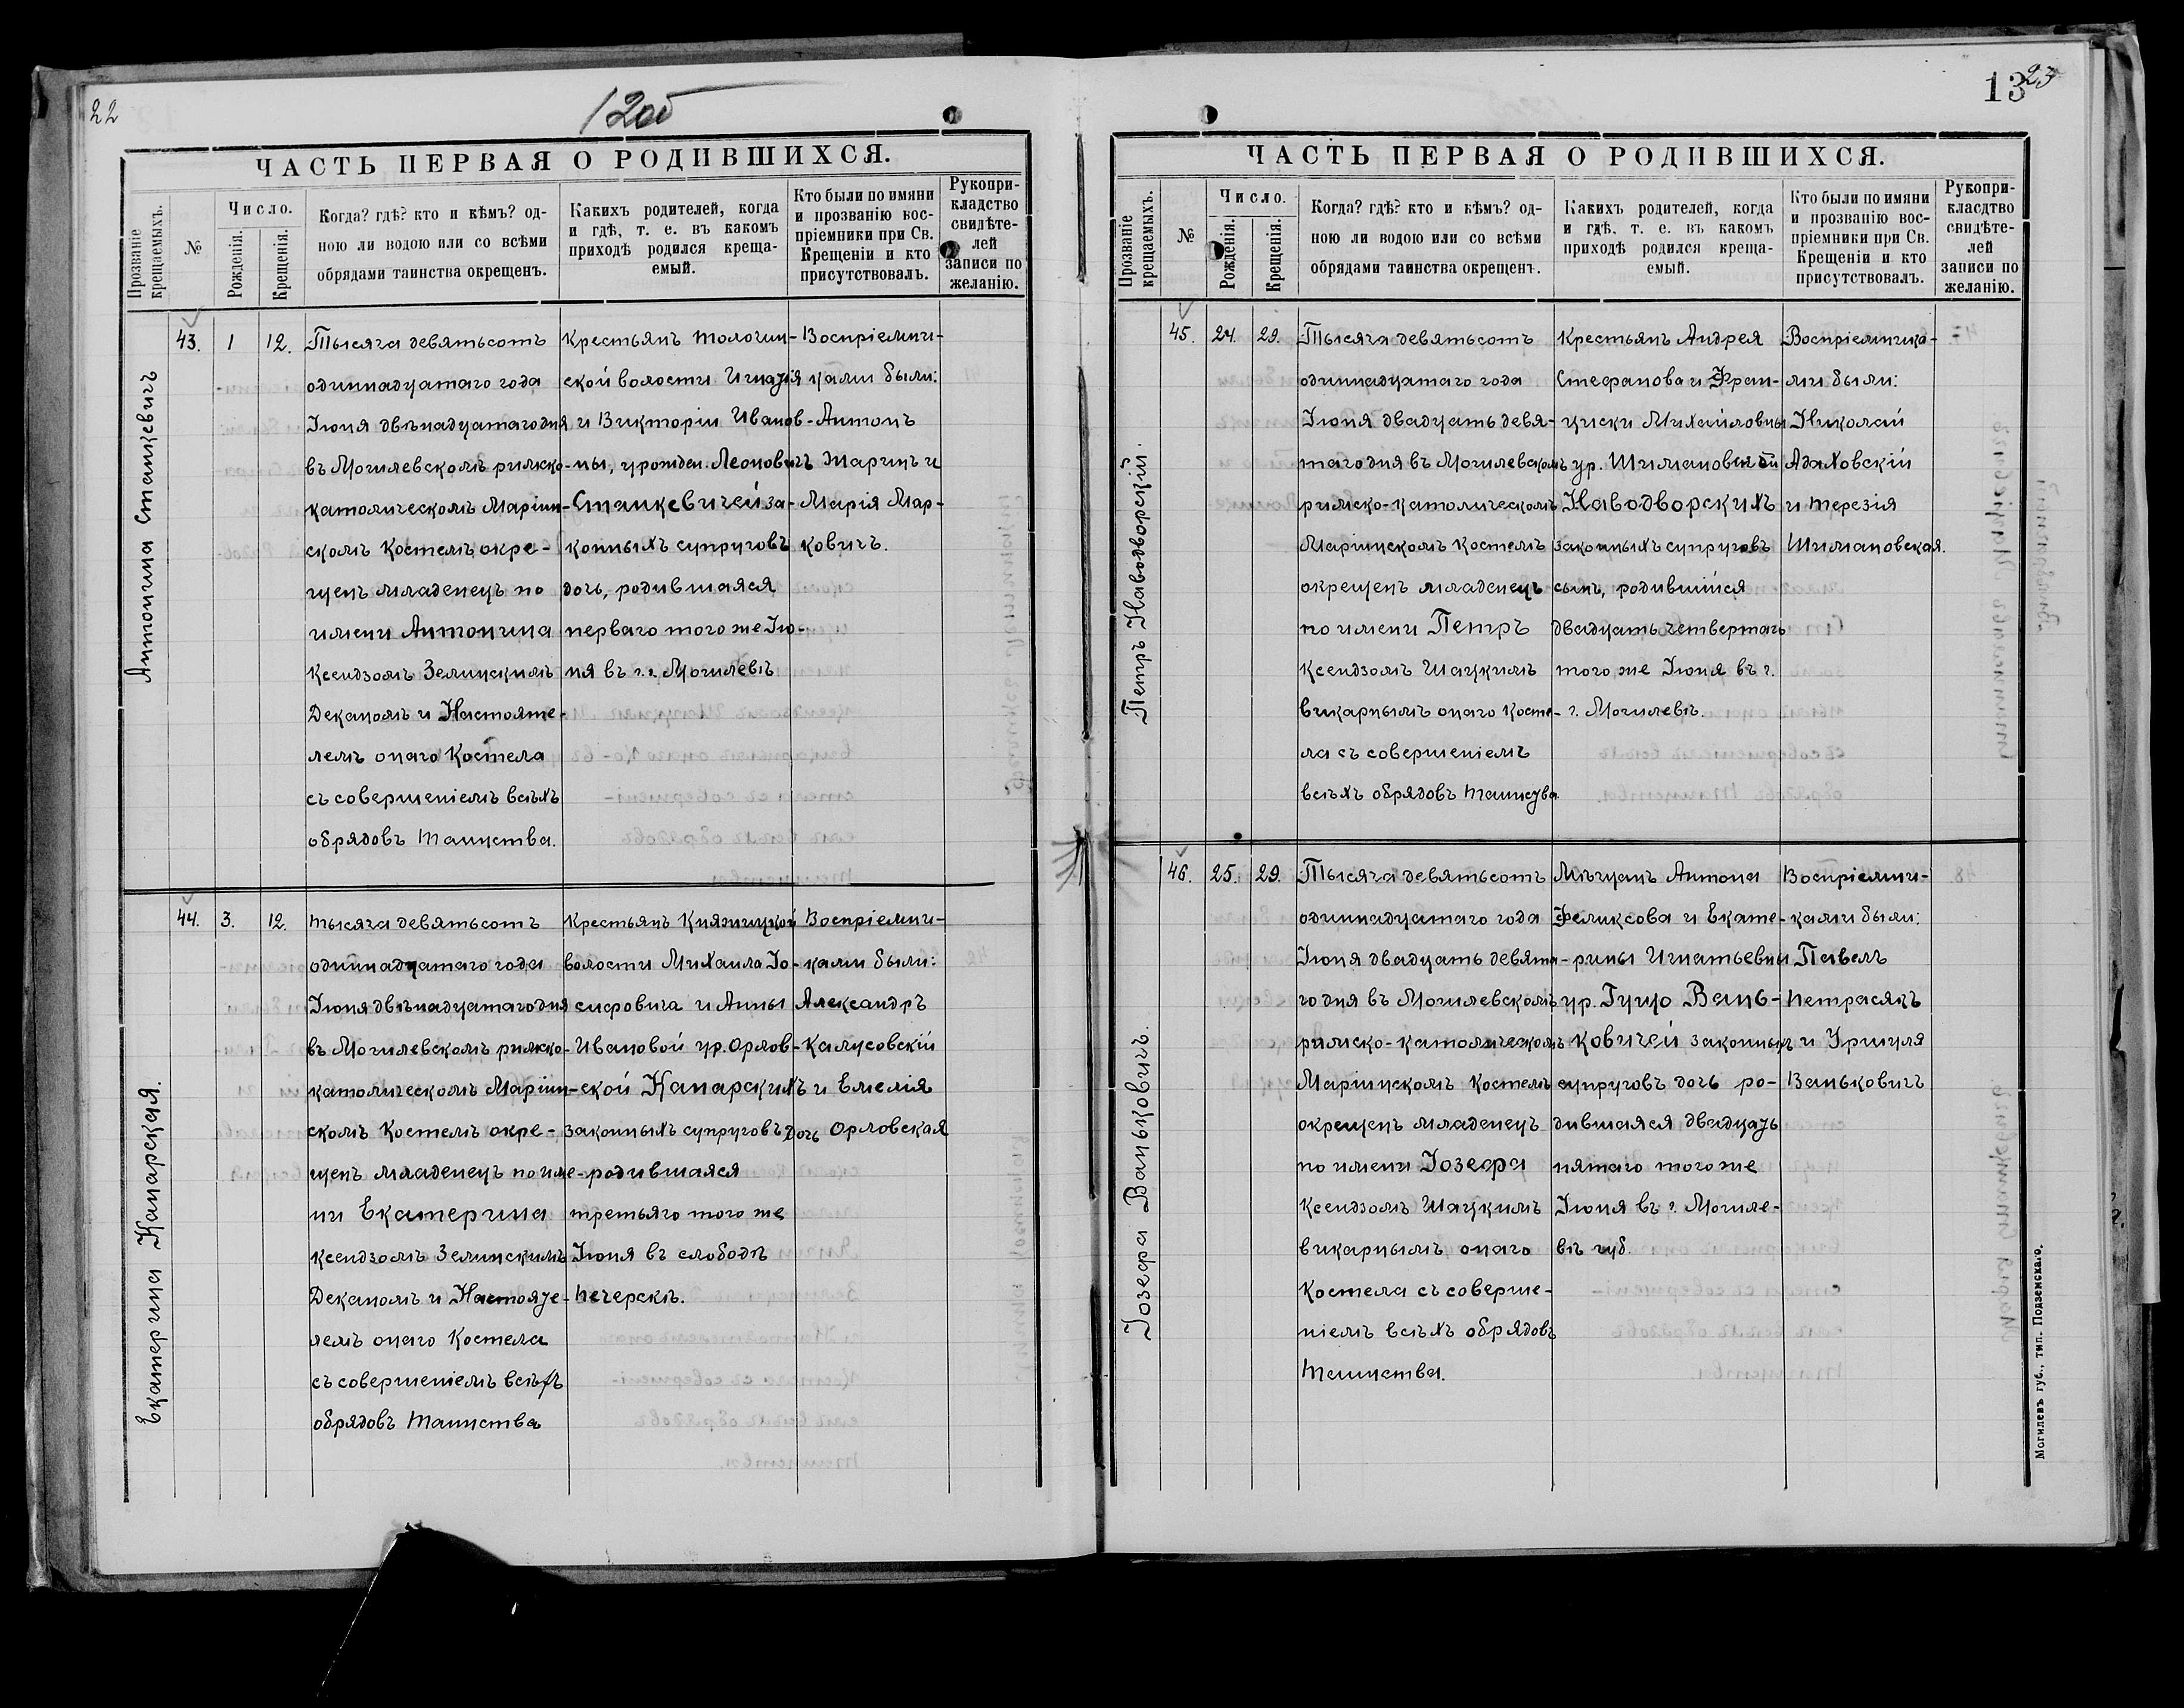 22
12об
ЧАСТЬ ПЕРВАЯ О РОДИВШИХСЯ.
Прозваніе крещаемыхъ.
№
Число.
Рожденія.
Крещенія.
Когда? гдѣ? кто и кѣмъ? од-
ною ли водою или со всѣми
обрядами таинства окрещенъ.
Какихъ родителей, когда
и гдѣ, т. е. въ какомъ
приходѣ родился креща-
емый.
Кто были по имяни
и прозванію вос-
пріемники при Св.
Крещеніи и кто
присутствовалъ.
Рукопри-
кладство
свидѣте-
лей
записи по
желанію.
Антонина Станкевичъ
43.
1
12.
Тысяча девятьсотъ
одиннадцатаго года
Іюня двѣнадцатаго дня
въ Могилевскомъ римско-
католическомъ Маріин-
скомъ Костелѣ окре-
щенъ младенецъ по
имени Антонина
Ксендзомъ Зелинскимъ
Деканомъ и Настояте-
лемъ онаго Костела
съ совершеніемъ всѣхъ
обрядовъ Таинства.
Крестьянъ Толочин-
ской волости Игнатія
и Викторіи Иванов-
ны, урожден. Леоновичъ
Станкевичей за-
конныхъ супруговъ
дочь, родившаяся
перваго того же Ію-
ня въ г. г. Могилевѣ
Воспріемни-
ками были:
Антонъ
Марцъ и
Марія Мар-
ковичъ.
Екатерина Канарская.
44.
3.
12.
Тысяча девятьсотъ
одиннадцатаго года
Іюня двѣнадцатаго дня
въ Могилевскомъ римско-
католическомъ Маріин-
скомъ Костелѣ окре-
щенъ младенецъ по име-
ни Екатерина
Ксендзомъ Зелинскимъ
Деканомъ и Настояте-
лемъ онаго Костела
съ совершеніемъ всѣхъ
обрядовъ Таинства
Крестьянъ Княжицкой
волости Михаила Іо-
сифовича и Анны
Ивановой ур. Орлов-
ской Канарскихъ
законныхъ супруговъ дочь
родившаяся
третьяго того же
Іюня въ слободѣ
Печерскѣ.
Воспріемни-
ками были:
Александръ
Калусовскій
и Емелія
Орловская
13
23
ЧАСТЬ ПЕРВАЯ О РОДИВШИХСЯ.
Прозваніе крещаемыхъ.
№
Число.
Рожденія.
Крещенія.
Когда? гдѣ? кто и кѣмъ? од-
ною ли водою или со всѣми
обрядами таинства окрещенъ.
Какихъ родителей, когда
и гдѣ, т. е. въ какомъ
приходѣ родился креща-
емый.
Кто были по имяни
и прозванію вос-
пріемники при Св.
Крещеніи и кто
присутствовалъ.
Рукопри-
класдтво
свидѣте-
лей
записи по
желанію.
Петръ Наводворскій.
45.
24.
29.
Тысяча девятьсотъ
одиннадцатаго года
Іюня двадцать девя-
таго дня въ Могилевскомъ
римско-католическомъ
Маріинскомъ Костелѣ
окрещенъ младенецъ
по имени Петръ
Ксендзомъ Шацкимъ
викарнымъ онаго Косте-
ла съ совершеніемъ
всѣхъ обрядовъ Таинства.
Крестьянъ Андрея
Стефанова и Фран-
циски Михайловны
ур. Шимановской
Наводворскихъ
законныхъ супруговъ
сынъ, родившійся
двадцать четвертаго
того же Іюня въ г.
г. Могилевѣ.
Воспріемника-
ми были:
Николай
Адаховскій
и Терезія
Шимановская.
Іозефа Ваньковичъ.
46.
25.
29.
Тысяча девятьсотъ
одиннадцатаго года
Іюня двадцать девята-
го дня въ Могилевскомъ
римско-католическомъ
Маріинскомъ Костелѣ
окрещенъ младенецъ
по имени Іозефа
Ксендзомъ Шацкимъ
викарнымъ онаго
Костела съ соверше-
ніемъ всѣхъ обрядовъ
Таинства.
Мѣщанъ Антона
Феликсова и Екате-
рины Игнатьевны
ур. Гуцо Вань-
ковичей законныхъ
супруговъ дочь ро-
дившаяся двадцать
пятаго того же
Іюня въ г. Могиле-
вѣ губ.
Воспріемни-
ками были:
Павелъ
Петрасякъ
и Уршуля
Ваньковичъ
Могилевъ губ., тип. Подземскаго.